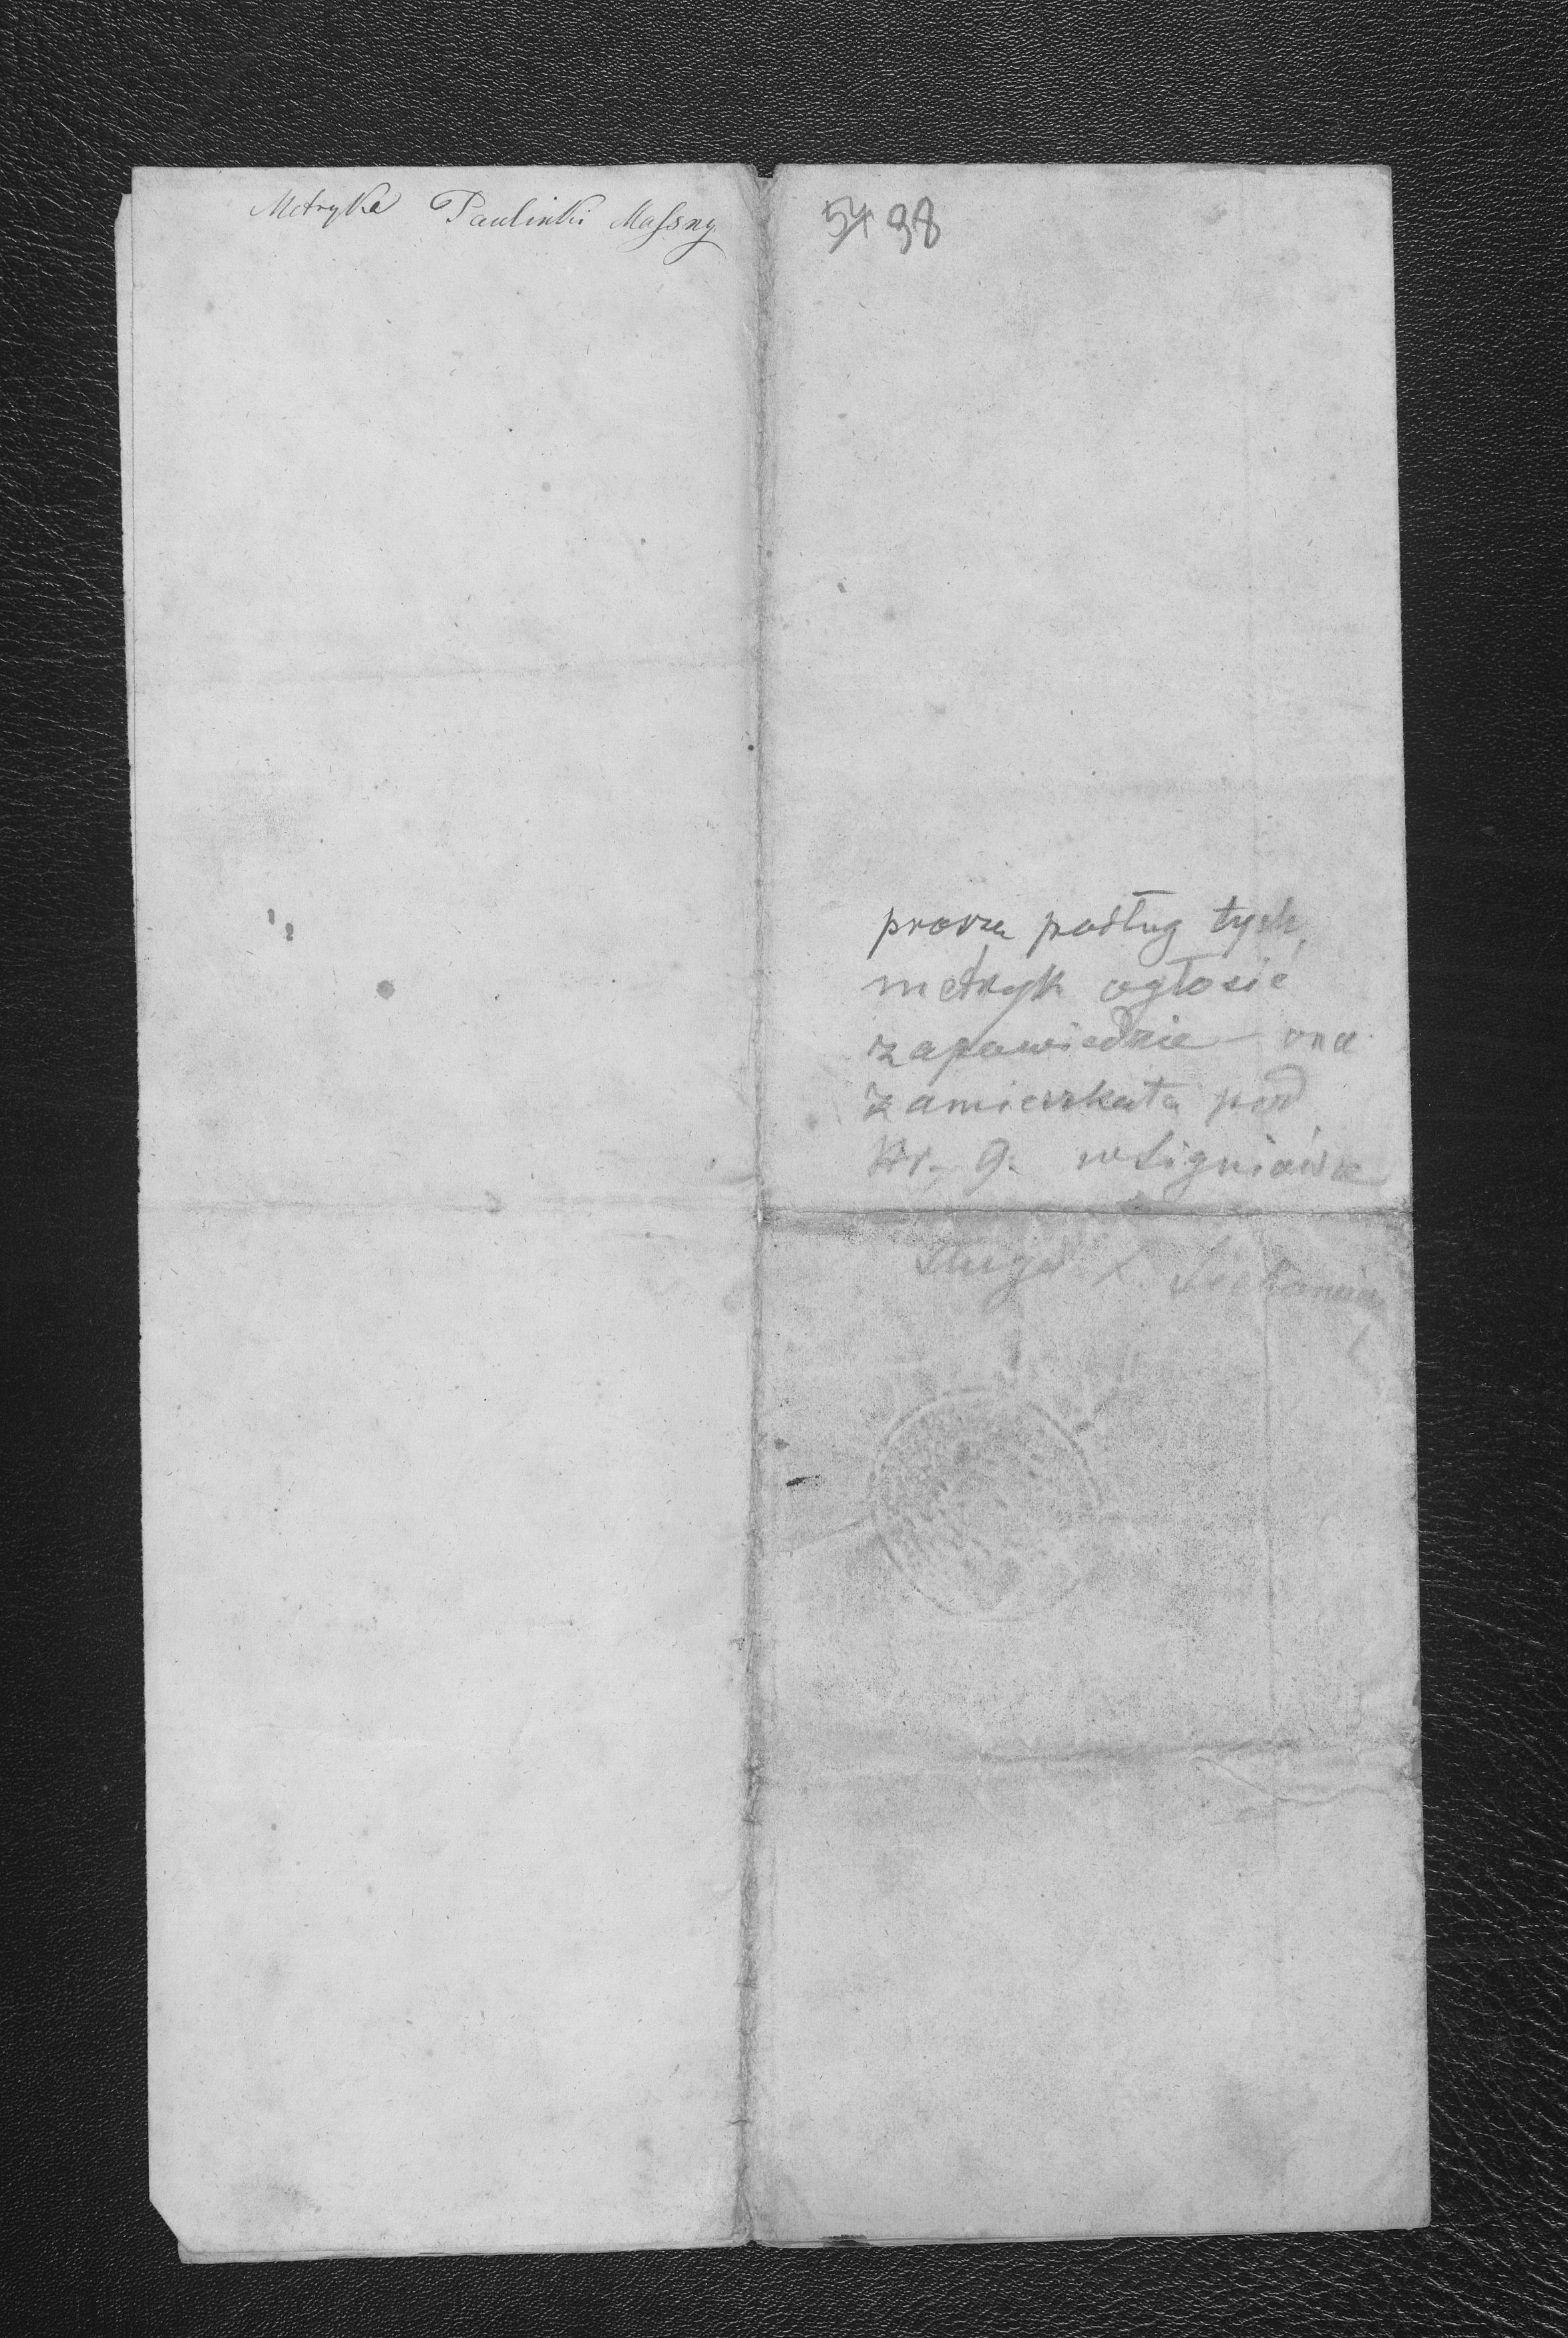 Metryka Paulinki Massny
54 98
proszę podług tych
metryk ogłosić
zapowiedzie – ona
zamieszkała pod
Nr. 9. w Signiówce
Sługa X.